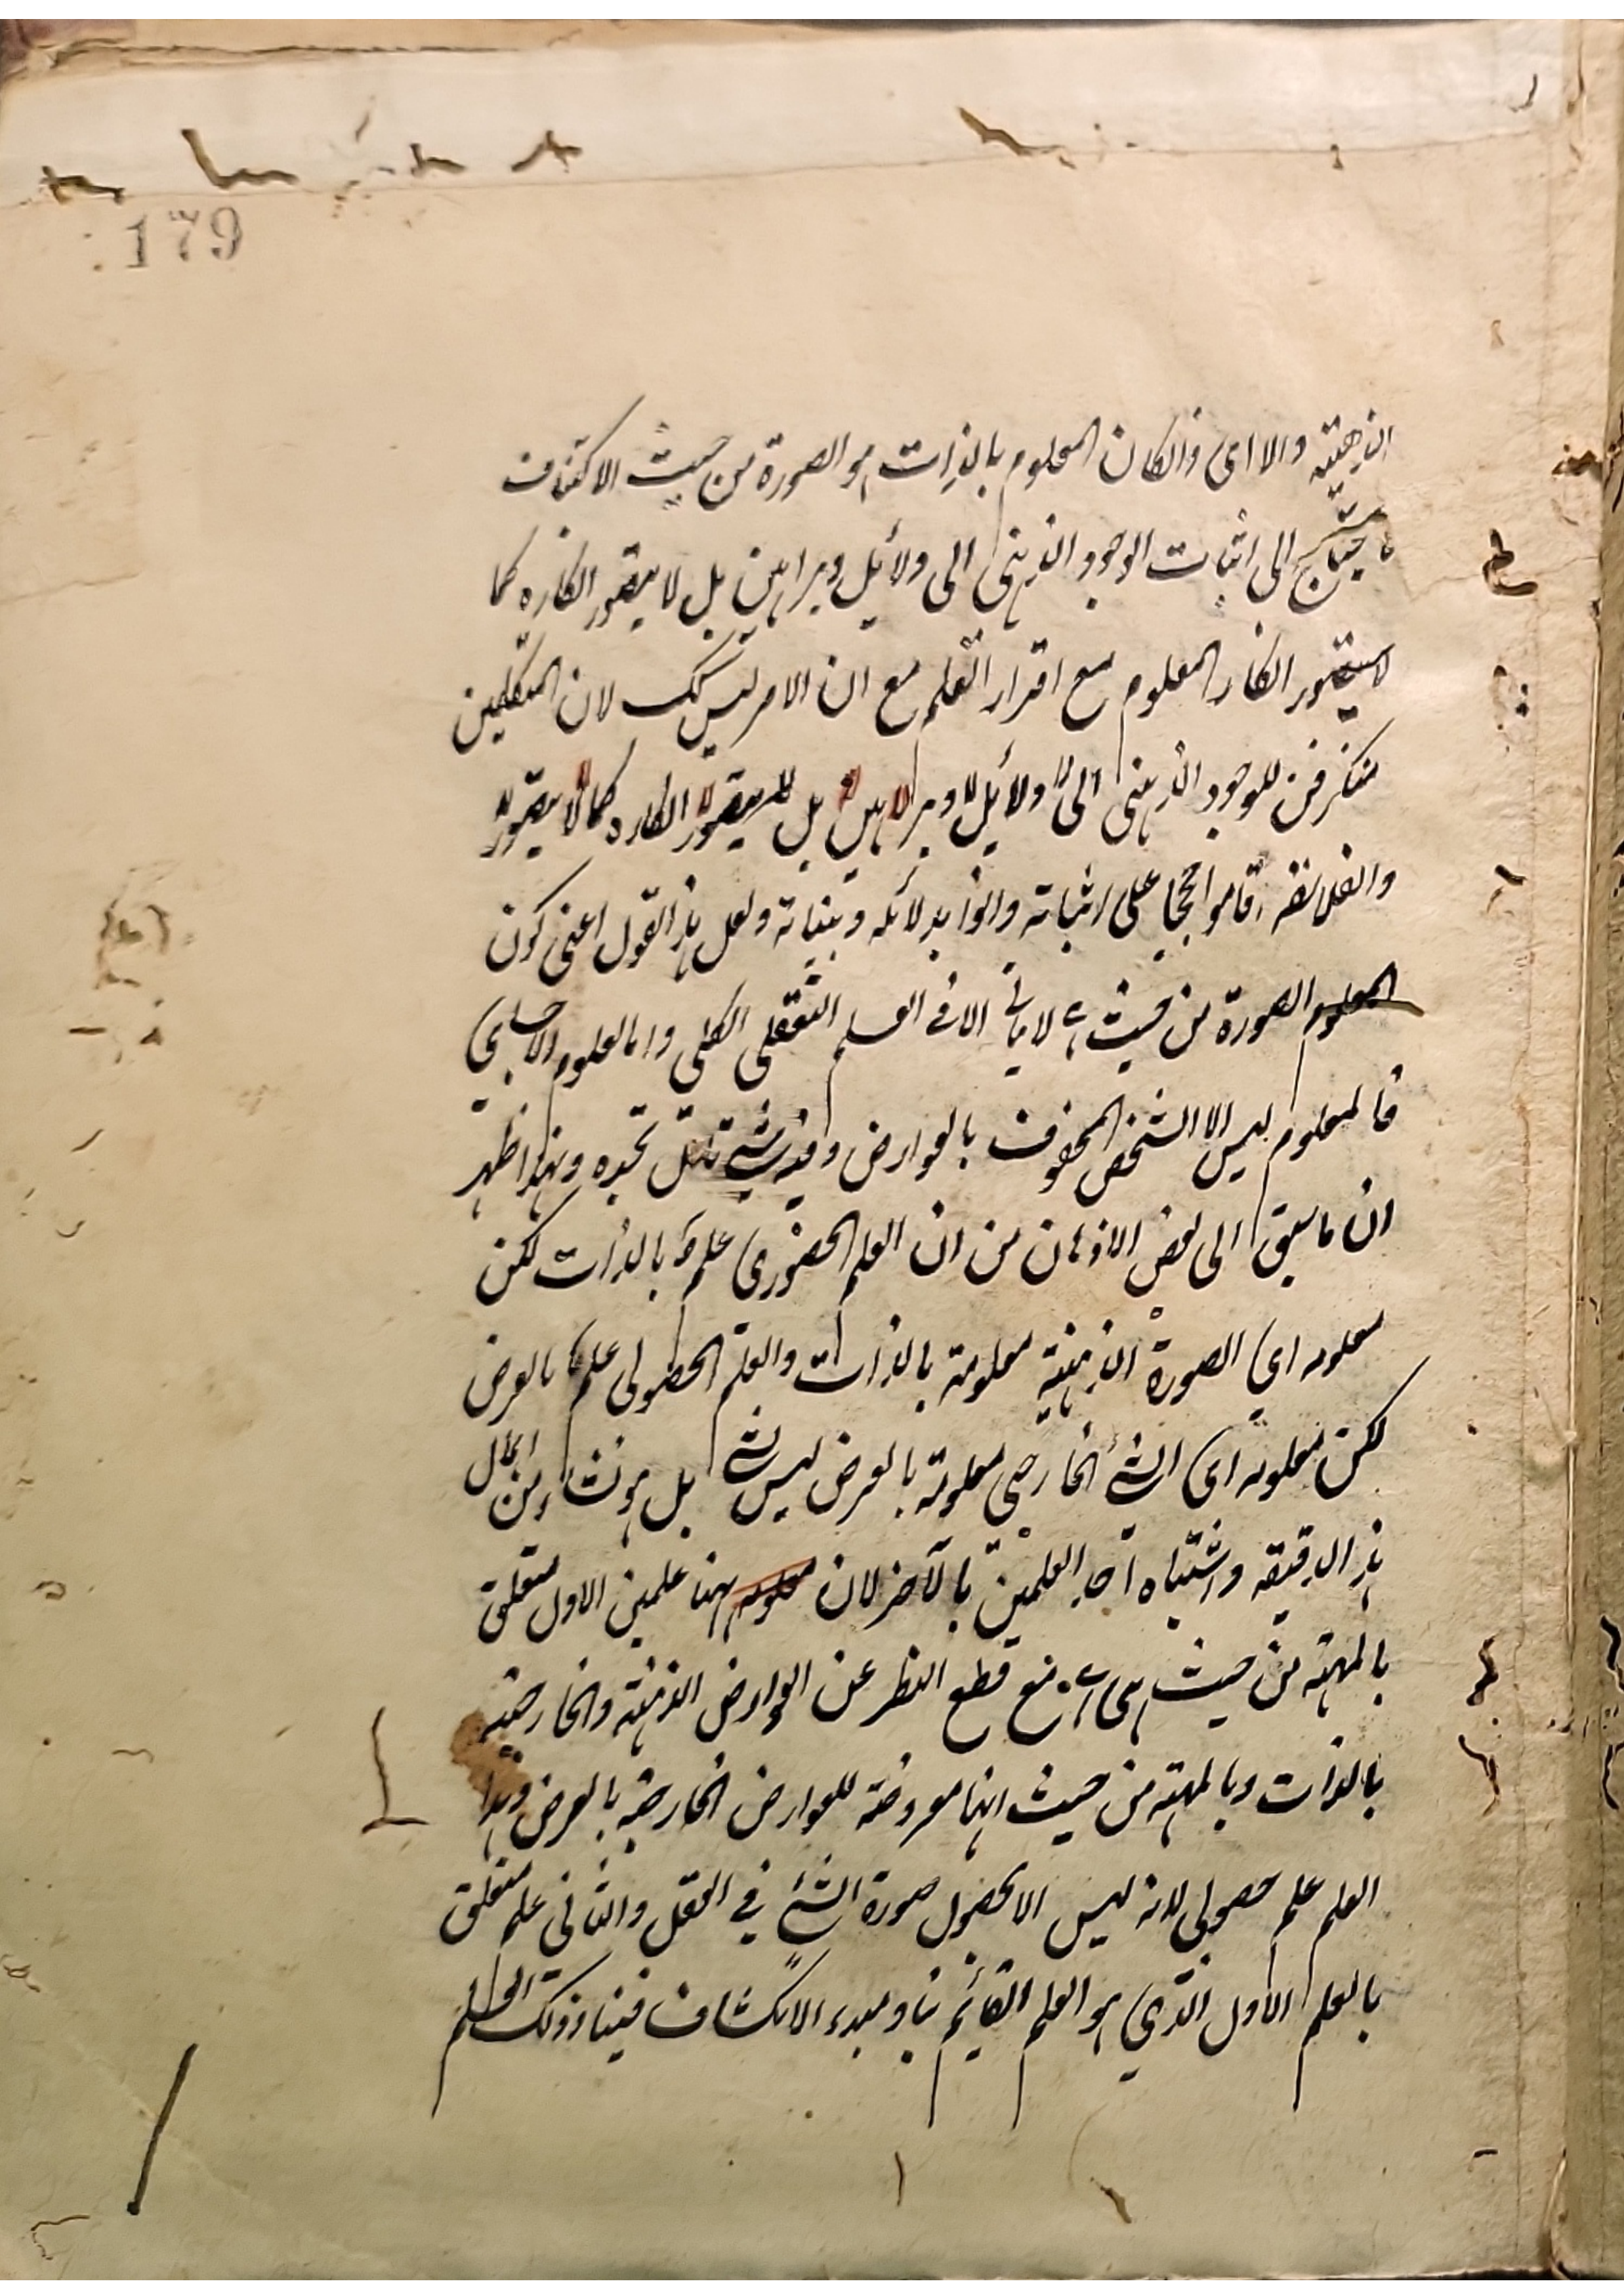 179
الذهنية والا اى وان كان المعلوم بالذات هو الصورة من حيث الاكتناف
ما يحتاج الى اثبات الوجود الذهنى الى دلائل وبراهين بل لا يتصور انكاره كما
لا يتصور انكار المعلوم مع اقرار العلم مع ان الامر ليس كك لان المتكلمين
للوجود الذهنى الى دلائل وبراهين بل لا يتصور انكاره كما لا يتصور
والفلاسفة اقاموا حججا على اثباته واتوا بدلائله وبيناته ولعل هذا القول اعنى كون
المعلوم الصورة من حيث هى لا ياتى الا فى العلم التعقلى الكلى واما العلوم الاحساسى
فالمعلوم ليس الا الشخص المحفوف بالعوارض وفيه شئ تامل تجده وبهذا ظهر
ان ما سبق الى بعض الاذهان من ان العلم الحضورى علم بالذات لكن
معلومه اي الصورة الذهنية معلومة بالذات والعلم الحصولى علم بالعرض
لكن معلومه اى الشئ الخارجى معلومة بالعرض ليس بشئ بل هو نشاء من اهمال
هذا الدقيقة واشتباه احد العلمين بالآخر لان معلومه ههنا علمين الاول متعلق
بالمهية من حيث هى هى مع قطع النظر عن العوارض الذهنية والخارجية
بالذات وبالمهية من حيث انها معروضة للعوارض الخارجية بالعرض وهذا
العلم علم حصولى لانه ليس الا بحصول صورة الشئ في العقل والثانى علم متعلق
بالعلم الاول الذي هو العلم القائم بنا ومبدء الانكشاف فينا وذلك العلم